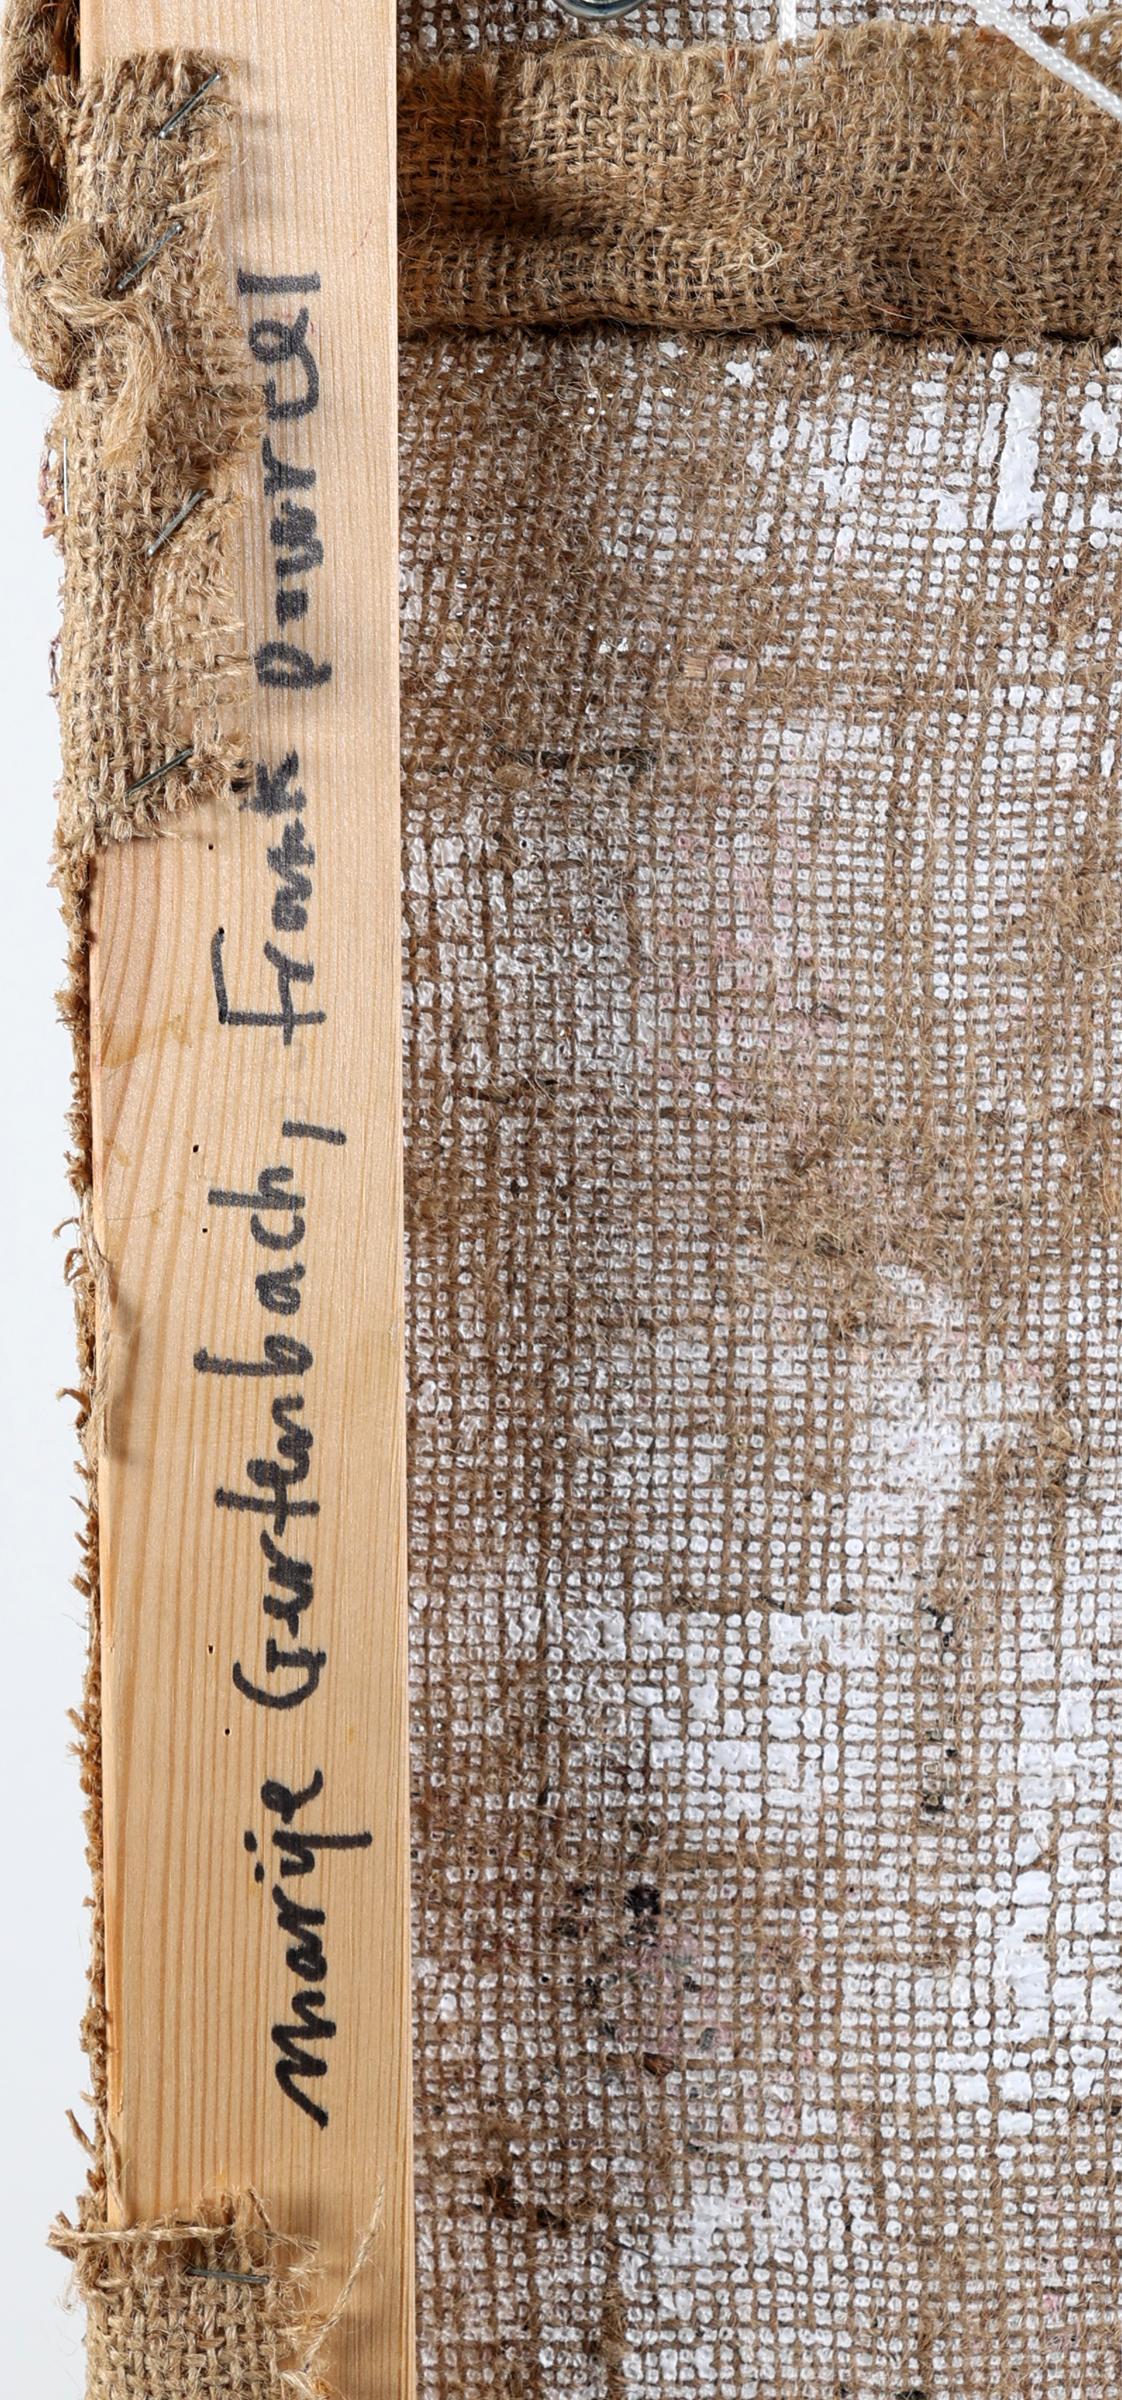 marije Gertenbach, Frank pauwel